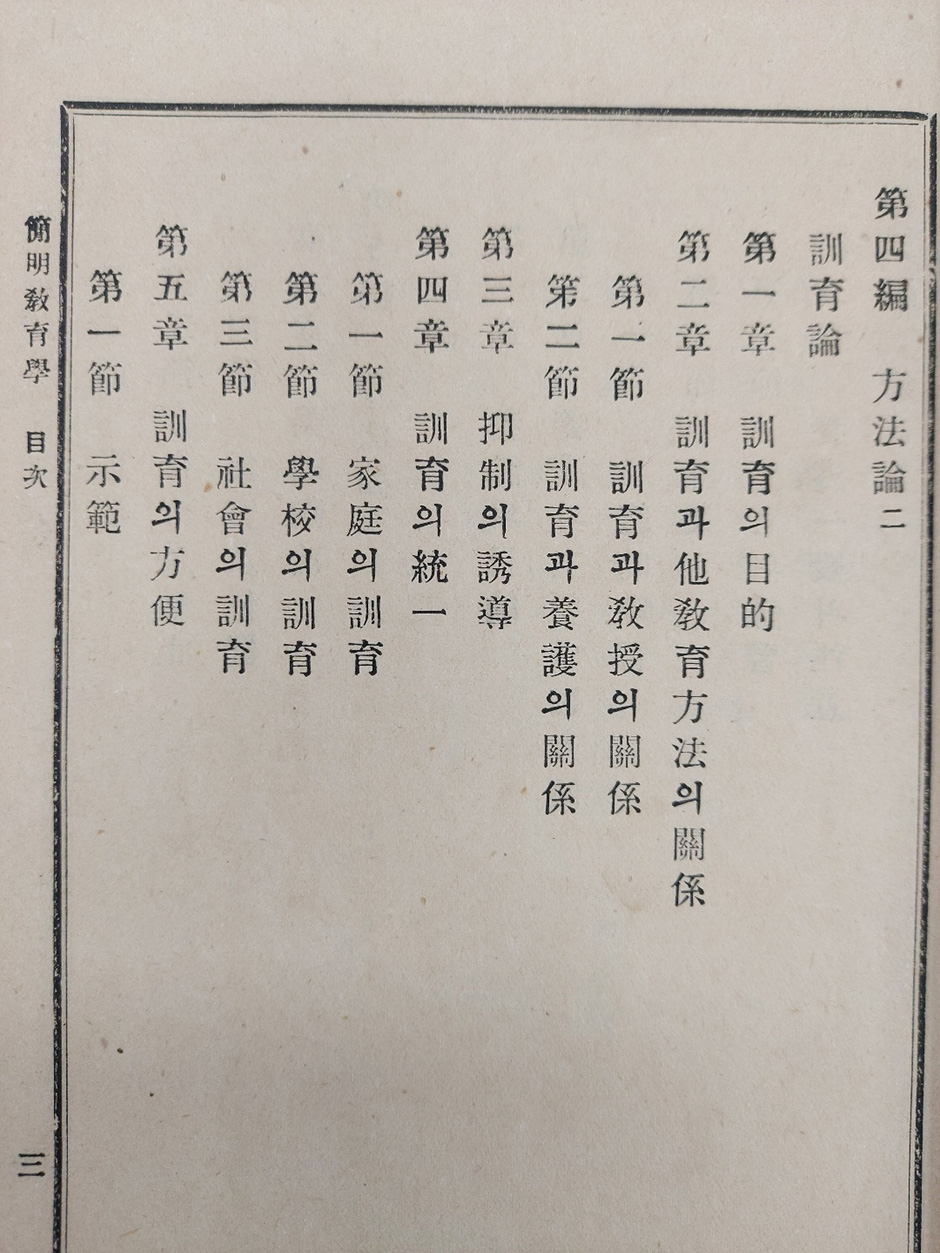 第四編 方法論二
訓育論
第一章 訓育의目的
第二章 訓育과他敎育方法의關係
第一節 訓育과敎授의關係
第二節 訓育과養護의關係
第三章 抑制의誘導
第四章 訓育의統一
第一節 家庭의訓育
第二節 學校의訓育
第三節 社會의訓育
第五章 訓育의方便
第一節 示範
簡明敎育學 目次
三